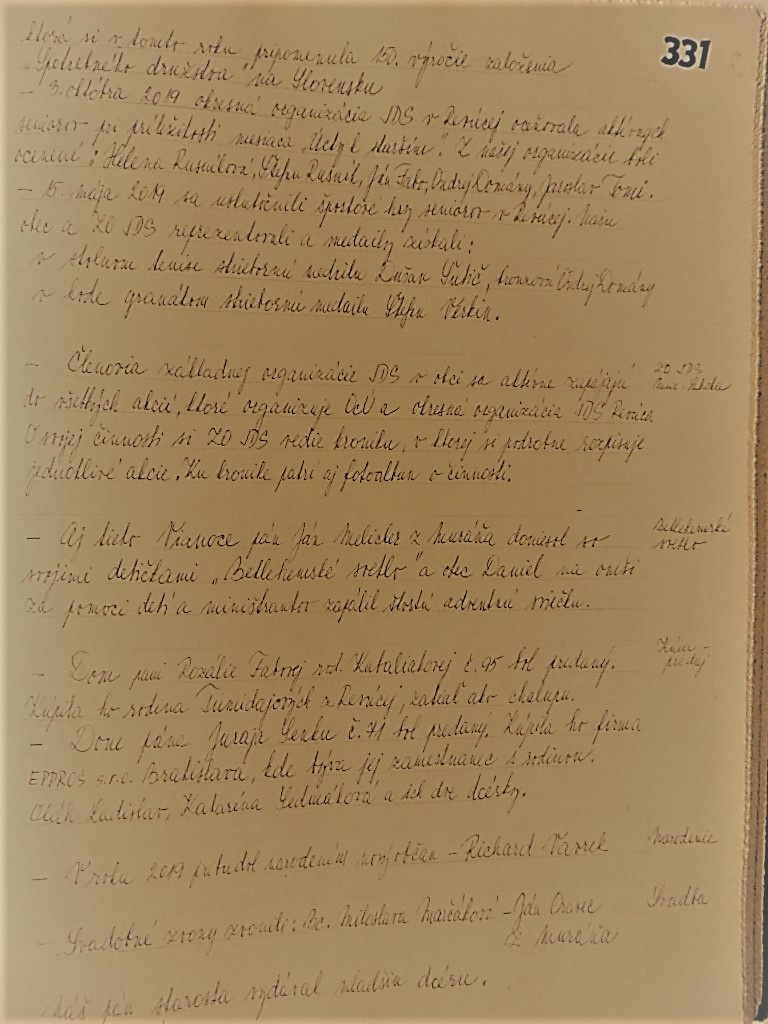 331
ktorá si v tomto roku pripomenula 150. výročie založenia
"Spotrebného družstva" na Slovensku
- 3. októbra 2019 okresná organizácia JDS v Revúcej oceňovala aktívnych
seniorov pri príležitosti mesiaca "Úcty k starším". Z našej organizácie boli
ocenení: Helena Rusnilová, Štefan Rusnil, Ján Fabo, Ondrej Domány, Jaroslav
- 15. mája 2019 sa uskutočnili športové hry seniorov v Revúcej. Našu
obec a ZO JDS reprezentovali a medaily získali:
v stolnom tenise striebornú medailu Dušan bronzovú Ondrej Domány
v hode granátom striebornú medailu Štefan
- Členovia základnej organizácie JDS v obci sa aktívne zapájajú
ZO JDS
do všetkých akcií, ktoré organizuje OcÚ a okresná organizácia JDS Revúca
O svojej činnosti si ZO JDS vedie kroniku, v ktorej si podrobne rozpisuje
jednotlivé akcie. Ku kronike patrí aj fotoalbum o činnosti.
- Aj tieto Vianoce pán Ján Melicher z Muráňa doniesol so
Betlehemské
svetlo
svojimi detičkami "Betlehemské svetlo" a otec Daniel na omši
za pomoci detí a miništrantov zapálil štvrtú adventnú sviečku.
- Dom pani Rozálie Fabovej rod. Kubaliakovej č. 95 bol predaný.
Kúpa -
predaj
Kúpila ho rodina z Revúcej, zatiaľ ako chalupu.
- Dom pána Juraja Lenku č. 71 bol predaný. Kúpila ho firma
EPPROS s.r.o. Bratislava, kde býva jej zamestnanec s rodinou.
Oláh Ladislav, Katarína Sedmáková a ich dve dcérky.
- V roku 2019 pribudol narodením nový občan - Richard Vavrek
Narodenie
- Svadobné zvony zvonili: Bc. Miloslava Marčáková - Ján Oravec
z Muráňa
Svadba
Náš pán starosta vydával mladšiu dcéru.